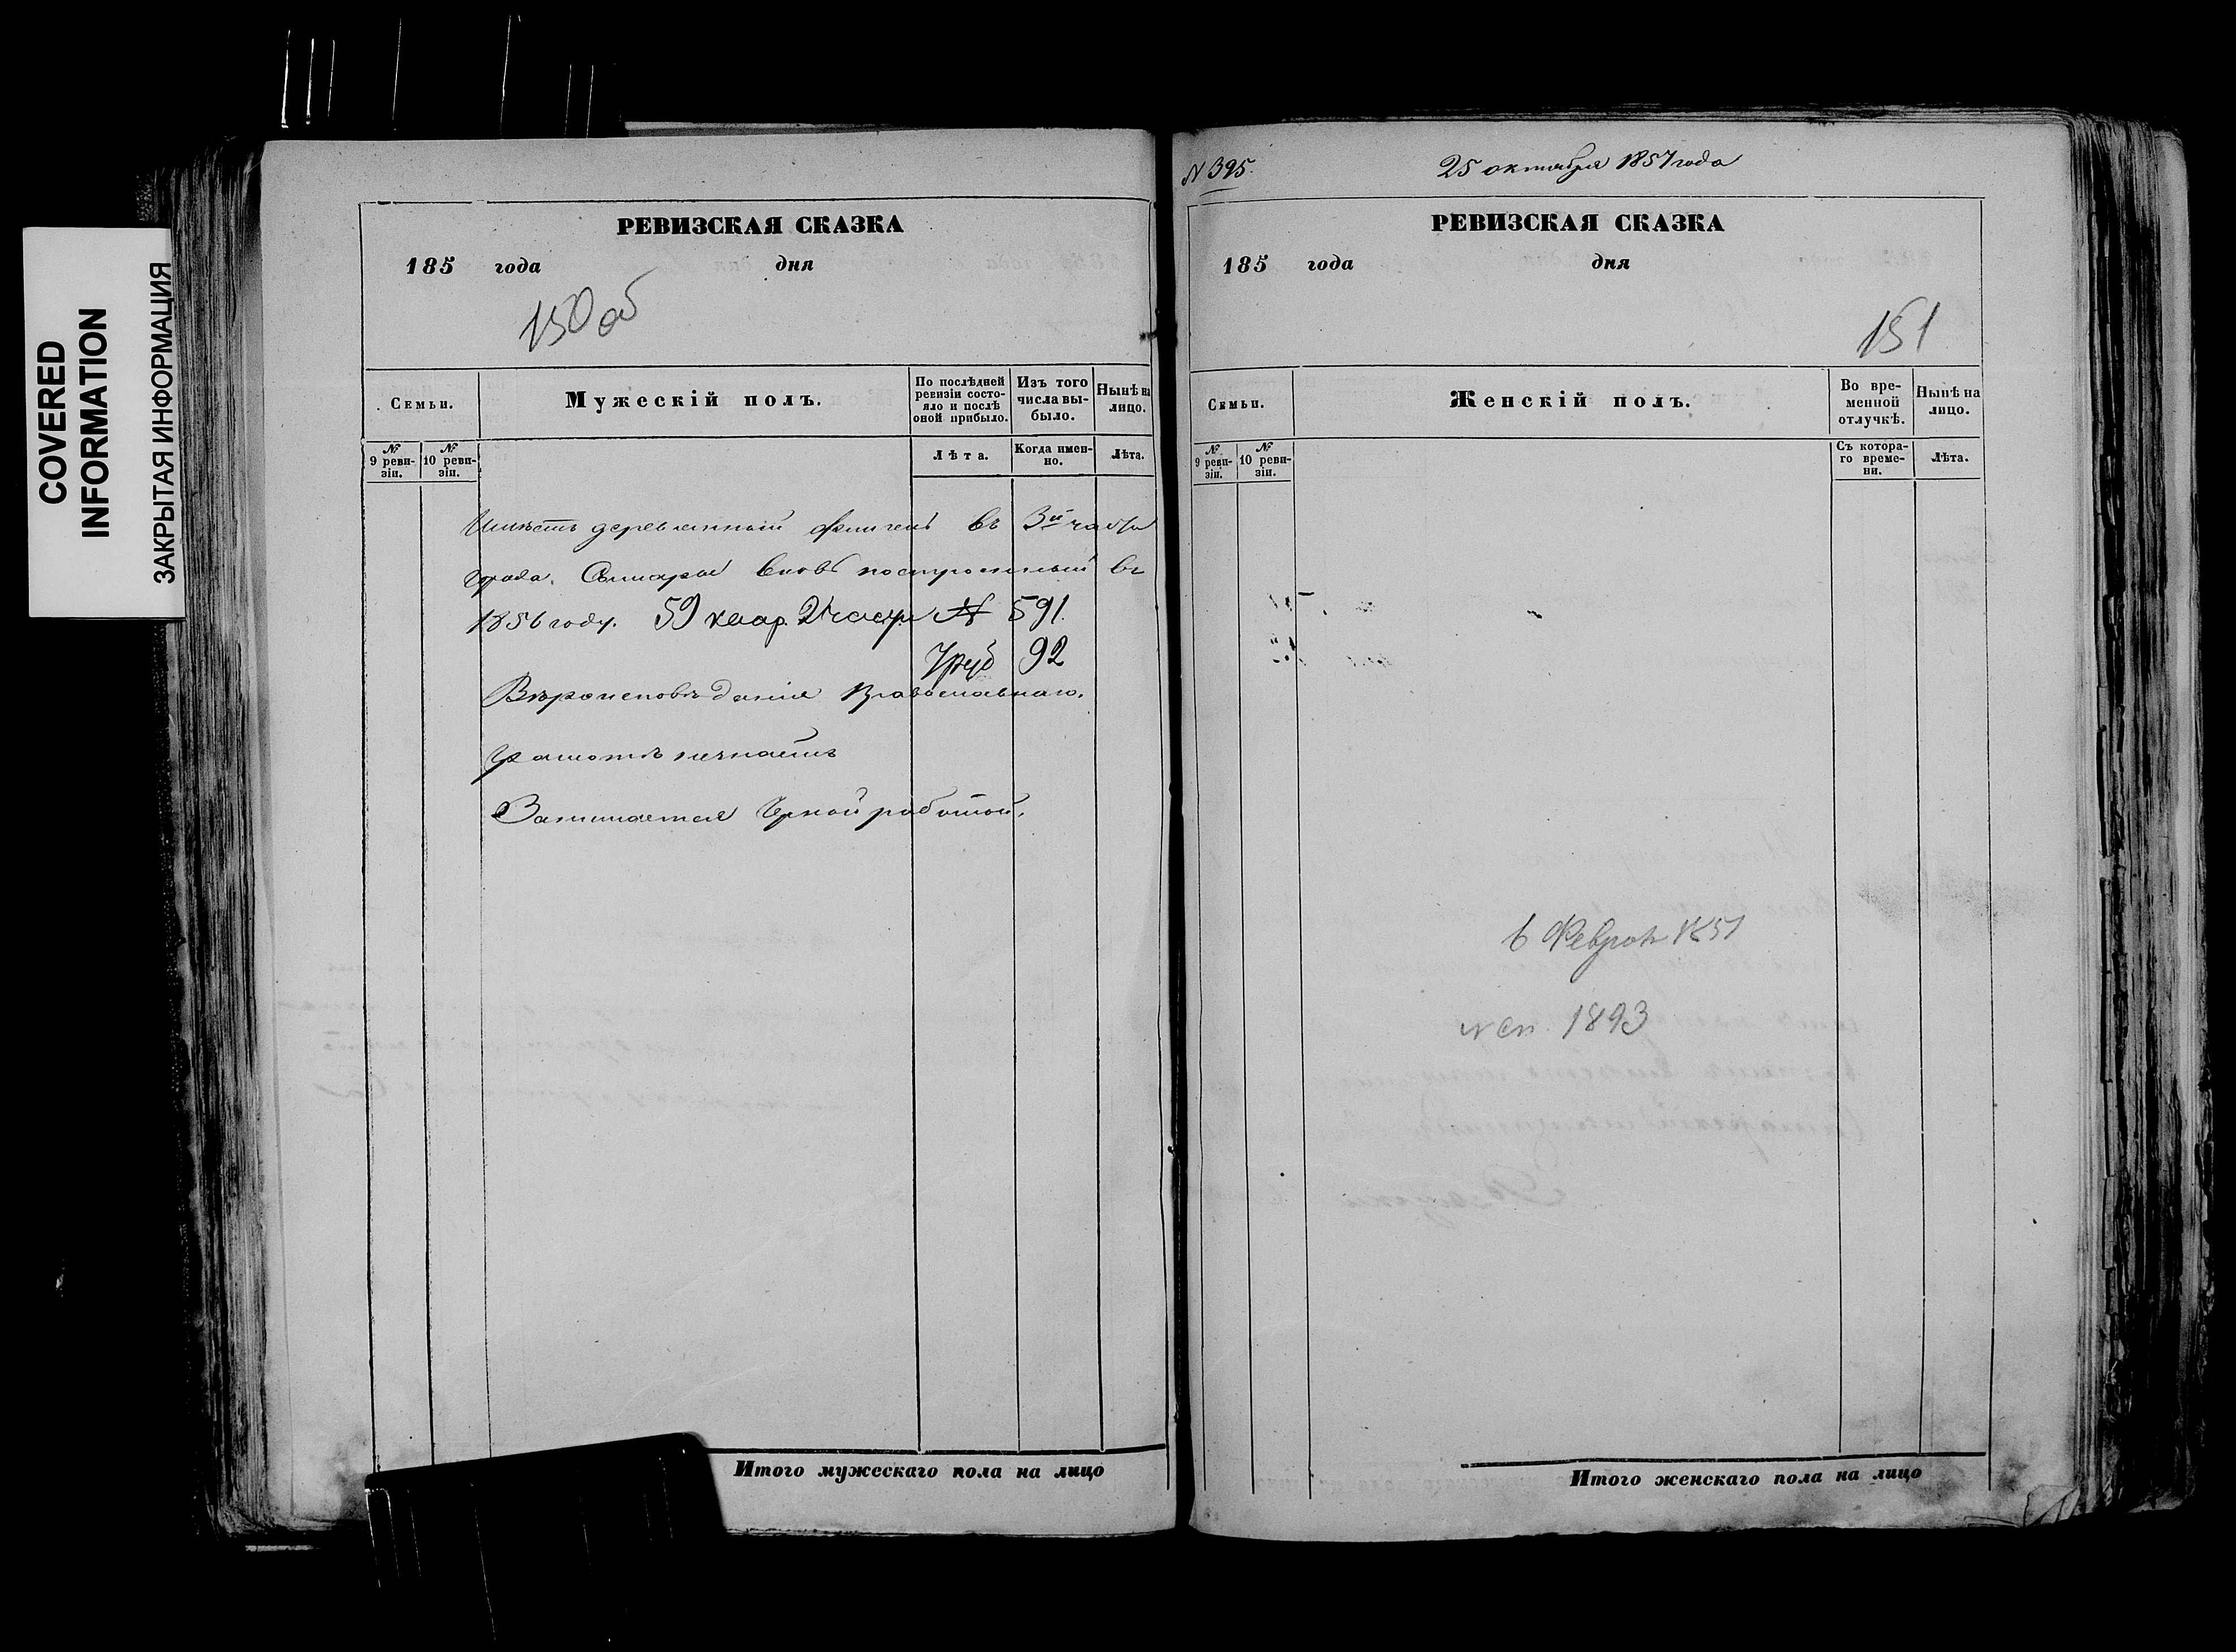 COVERED
INFORMATION
ЗАКРЫТАЯ ИНФОРМАЦИЯ
РЕВИЗСКАЯ СКАЗКА
185 года дня
150 об
Семьи.
Мужескій полъ.
По послѣдней ревизіи состояло и послѣ оной прибыло.
Изъ того числа выбыло.
Нынѣ на лицо.
№ 9 ревизіи.
№ 10 ревизіи.
Лѣта.
Когда именно.
Лѣта.
Имѣетъ деревянный флигель въ 3й части
города Самары вновь построенный въ
1856 году. 59 квар. 2 части № 591.
руб 92
Вѣроисповѣданія Православнаго.
Грамотѣ незнаетъ
Занимается Черной работой.
Итого мужескаго пола на лицо
N 395.
25 октября 1857 года
РЕВИЗСКАЯ СКАЗКА
185 года дня
151
Семьи.
Женскій полъ.
Во временной отлучкѣ.
Нынѣ на лицо.
№ 9 ревизіи.
№ 10 ревизіи.
Съ котораго времени.
Лѣта.
6 Февраля 1857
1893
Итого женскаго пола на лицо